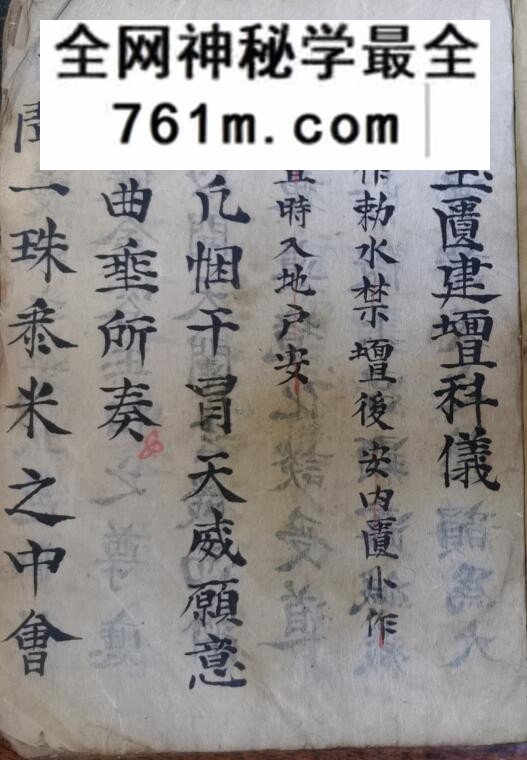 全网神秘学最全
761m.com
匱建壇科儀
作勅水禁壇後安内匱小作
時入地户安
凡悃干冒天威願意
曲垂所奏
一珠黍米之中會